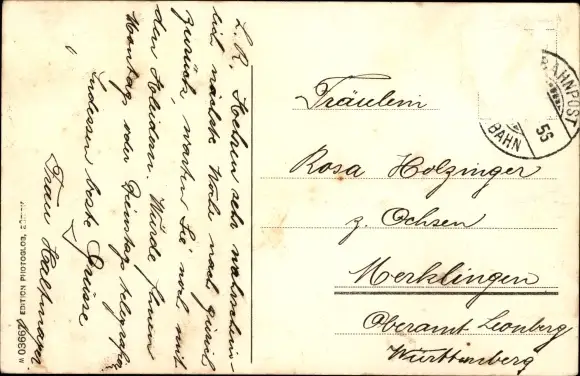 L. R. Stehen sehr wahrschein-
lich nächste Woche nach
zurück, warten Sie noch mit
den Kleidern. Würde Ihnen
Montag oder Dienstag
Indessen beste Grüsse
Frau
Fräulein
Rosa Holzinger
z. Ochsen
Merklingen
Oberamt Leonberg
Württemberg
BAHNPOST
56
BAHN
03662 EDITION PHOTOGLOB, ZÜRICH